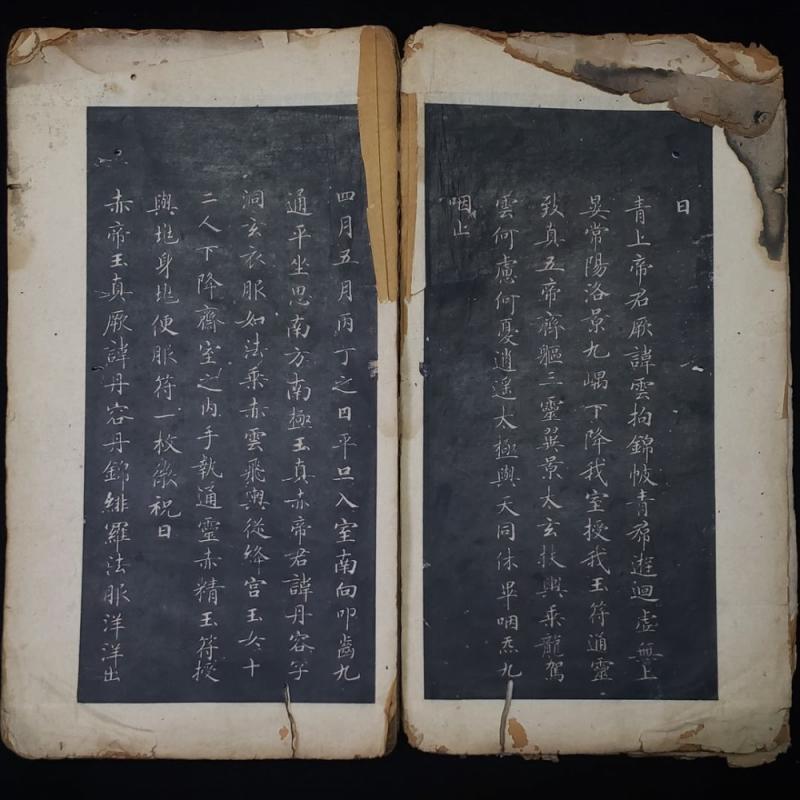 曰
青上帝君厥諱雲拘錦帔青帬遊迴虛無上
晏常陽洛景九嵎下降我室授我玉符通靈
致真五帝齊軀三靈翼景太玄扶輿乘龍駕
雲何慮何憂逍遙太極與天同休畢咽炁九
咽止
四月五月丙丁之日平旦入室南向叩齒九
通平坐思南方南極玉真赤帝君諱丹容字
洞玄衣服如法乘赤雲飛輿從絳宮玉女十
二人下降齋室之內手執通靈赤精玉符授
與地身地便服符一枚微祝曰
赤帝玉真厥諱丹容丹錦緋羅法服洋洋出